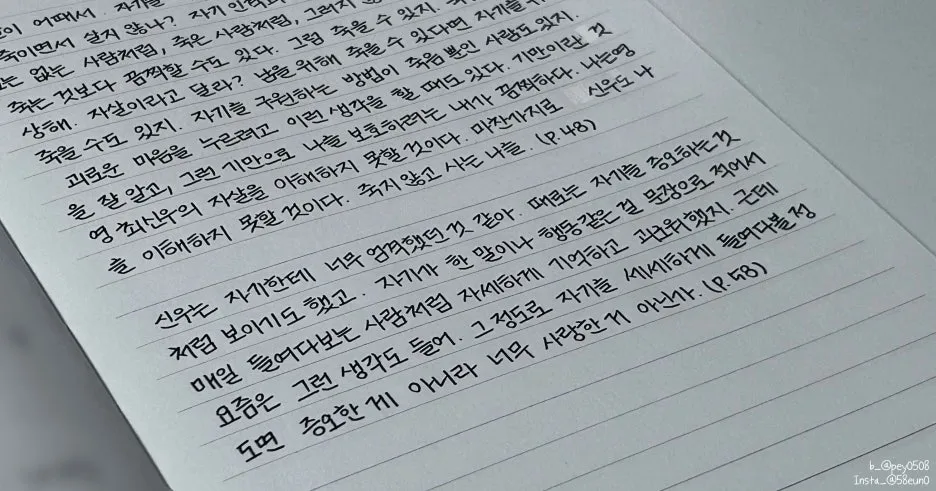 이 어때서. 자기를
죽이면서 살지 않나? 자기
는 없는 사람처럼, 죽은 사람처럼, 그러지 않
죽는 것보다 끔찍할 수도 있다. 그럼 죽을 수 있지.
상해. 자살이라고 달라? 남을 위해 죽을 수 있다면 자기를
죽을 수도 있지. 자기를 구원하는 방법이 죽음 뿐인 사람도 있지.
괴로운 마음을 누르려고 이런 생각을 할 때도 있다. 기만이란 것
을 잘 알고, 그런 기만으로 나를 보호하려는 내가 끔찍하다. 나는 영
영 최신우의 자살을 이해하지 못할 것이다. 마찬가지로 신우도 나
를 이해하지 못할 것이다. 죽지 않고 사는 나를. (p.48)
신우는 자기한테 너무 엄격했던 것 같아. 때로는 자기를 증오하는 것
처럼 보이기도 했고. 자기가 한 말이나 행동같은 걸 문장으로 적어서
매일 들여다보는 사람처럼 자세하게 기억하고 괴로워했지. 근데
요즘은 그런 생각도 들어. 그 정도로 자기를 세세하게 들여다볼 정
도면 증오한 게 아니라 너무 사랑한 거 아닌가. (p.58)
b_@pey0508
Insta_@58eun0